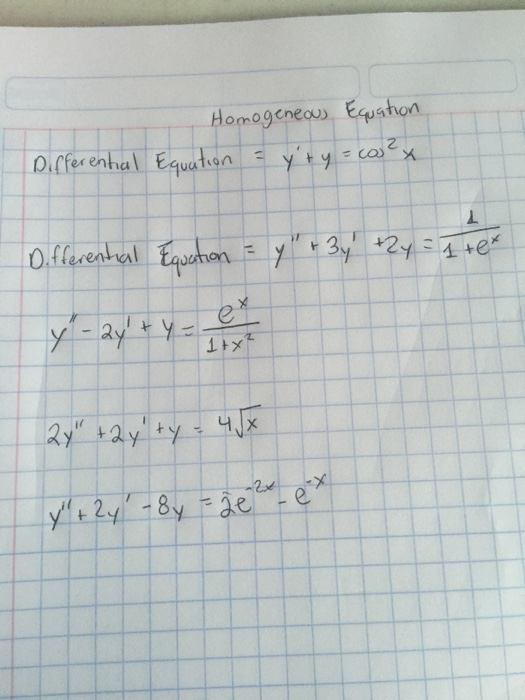 Homogeneous Equation
Differential Equation = y' + y = cos² x
Differential Equation = y'' + 3y' + 2y = 1/(1 + eˣ)
y'' - 2y' + y = eˣ/(1 + x²)
2y'' + 2y' + y = 4√x
y'' + 2y' - 8y = 2e⁻²ˣ - e⁻ˣ